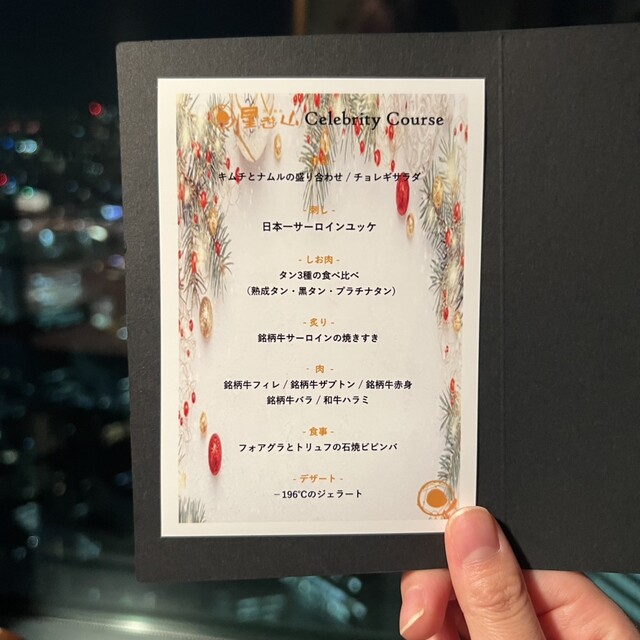 Celebrity Course
キムチとナムルの盛り合わせ / チョレギサラダ
- 刺し -
日本一サーロインユッケ
- しお肉 -
タン3種の食べ比べ
（熟成タン・黒タン・プラチナタン）
- 炙り -
銘柄牛サーロインの焼きすき
- 肉 -
銘柄牛フィレ / 銘柄牛ザブトン / 銘柄牛赤身
銘柄牛バラ / 和牛ハラミ
- 食事 -
フォアグラとトリュフの石焼ビビンバ
- デザート -
－196℃のジェラート